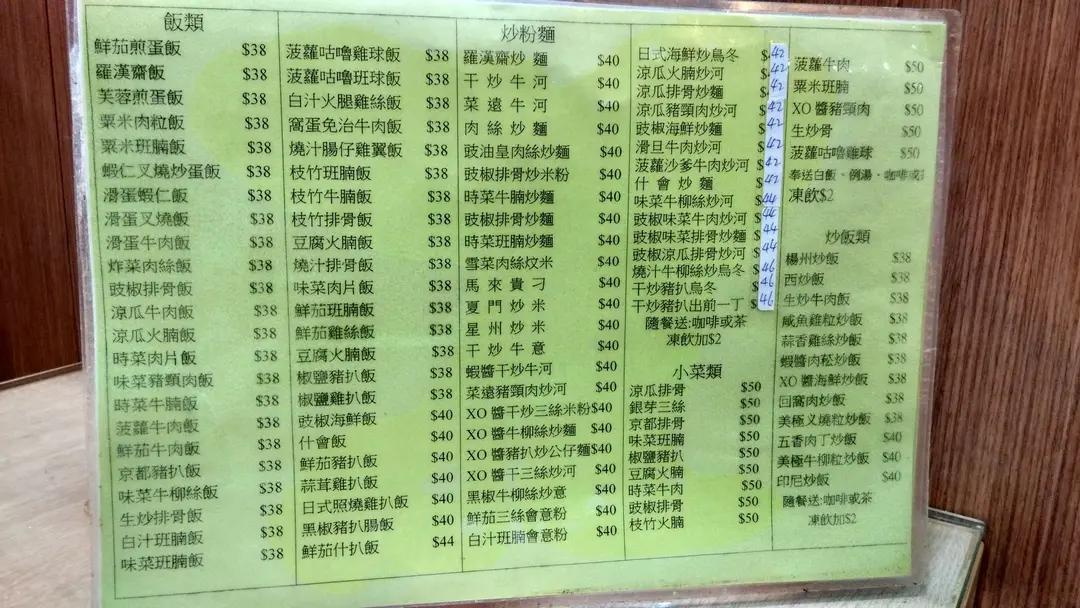 飯類
鮮茄煎蛋飯 $38
羅漢齋飯 $38
芙蓉煎蛋飯 $38
粟米肉粒飯 $38
粟米班腩飯 $38
蝦仁叉燒炒蛋飯 $38
滑蛋蝦仁飯 $38
滑蛋叉燒飯 $38
滑蛋牛肉飯 $38
炸菜肉絲飯 $38
豉椒排骨飯 $38
涼瓜牛肉飯 $38
涼瓜火腩飯 $38
時菜肉片飯 $38
味菜豬頸肉飯 $38
時菜牛腩飯 $38
菠蘿牛肉飯 $38
鮮茄牛肉飯 $38
京都豬扒飯 $38
味菜牛柳絲飯 $38
生炒排骨飯 $38
白汁班腩飯 $38
味菜班腩飯 $38
菠蘿咕嚕雞球飯 $38
菠蘿咕嚕班球飯 $38
白汁火腿雞絲飯 $38
窩蛋免治牛肉飯 $38
燒汁腸仔雞翼飯 $38
枝竹班腩飯 $38
枝竹牛腩飯 $38
枝竹排骨飯 $38
豆腐火腩飯 $38
燒汁排骨飯 $38
味菜肉片飯 $38
鮮茄班腩飯 $38
鮮茄雞絲飯 $38
豆腐火腩飯 $38
椒鹽豬扒飯 $38
椒鹽雞扒飯 $38
豉椒海鮮飯 $40
什會飯 $40
鮮茄豬扒飯 $40
蒜茸雞扒飯 $40
日式照燒雞扒飯 $40
黑椒豬扒腸飯 $40
鮮茄什扒飯 $44
炒粉麵
羅漢齋炒麵 $40
干炒牛河 $40
菜遠牛河 $40
肉絲炒麵 $40
豉油皇肉絲炒麵 $40
豉椒排骨炒米粉 $40
時菜牛腩炒麵 $40
豉椒排骨炒麵 $40
時菜班腩炒麵 $40
雪菜肉絲炆米 $40
馬來貴刁 $40
夏門炒米 $40
星州炒米 $40
干炒牛意 $40
蝦醬干炒牛河 $40
菜遠豬頸肉炒河 $40
XO醬干炒三絲米粉 $40
XO醬牛柳絲炒麵 $40
XO醬豬扒炒公仔麵 $40
XO醬干三絲炒河 $40
黑椒牛柳絲炒意 $40
鮮茄三絲會意粉 $40
白汁班腩會意粉 $40
日式海鮮炒烏冬 $42
涼瓜火腩炒河 $42
涼瓜排骨炒麵 $42
涼瓜豬頸肉炒河 $42
豉椒海鮮炒麵 $42
滑旦牛肉炒河 $42
菠蘿沙爹牛肉炒河 $42
什會炒麵 $42
味菜牛柳絲炒河 $44
豉椒味菜牛肉炒河 $44
豉椒味菜排骨炒麵 $44
豉椒涼瓜排骨炒河 $44
燒汁牛柳絲炒烏冬 $46
干炒豬扒烏冬 $46
干炒豬扒出前一丁 $46
隨餐送:咖啡或茶
凍飲加$2
小菜類
涼瓜排骨 $50
銀芽三絲 $50
京都排骨 $50
味菜班腩 $50
椒鹽豬扒 $50
豆腐火腩 $50
時菜牛肉 $50
豉椒排骨 $50
枝竹火腩 $50
菠蘿牛肉 $50
粟米班腩 $50
XO醬豬頸肉 $50
生炒骨 $50
菠蘿咕嚕雞球 $50
奉送白飯、例湯、咖啡或
凍飲$2
炒飯類
楊州炒飯 $38
西炒飯 $38
生炒牛肉飯 $38
咸魚雞粒炒飯 $38
蒜香雞絲炒飯 $38
蝦醬肉崧炒飯 $38
XO醬海鮮炒飯 $38
回窩肉炒飯 $38
美極叉燒粒炒飯 $38
五香肉丁炒飯 $40
美極牛柳粒炒飯 $40
印尼炒飯 $40
隨餐送:咖啡或茶
凍飲加$2